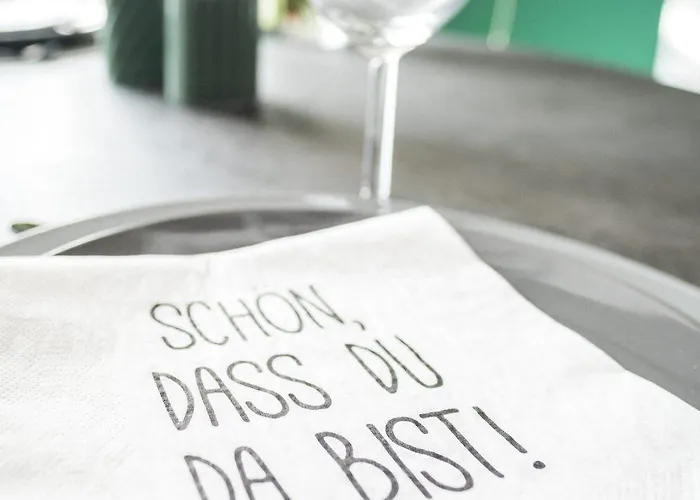 SCHÖN,
DASS DU
DA BIST!